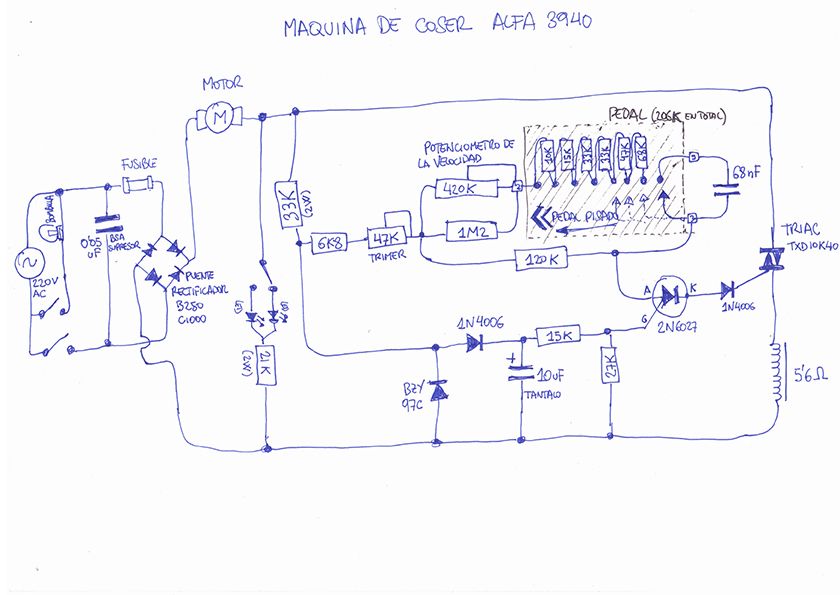 MAQUINA DE COSER ALFA 3940
MOTOR
M
PEDAL (206K EN TOTAL)
POTENCIOMETRO DE
LA VELOCIDAD
10K
15K
33K
33K
47K
68K
FUSIBLE
420K
68nF
33K
(2W)
BOMBILLA
BSA
SUPRESOR
PEDAL PISADO
6K8
47K
TRIMER
1M2
TRIAC
TXD10K40
120K
220V
AC
PUENTE
RECTIFICADOR
B280
C1000
A
K
G
2N6027
1N4006
LED
LED
1N4006
15K
27K
21K
(2W)
BZY
97C
+
10uF
TANTALO
5'6Ω